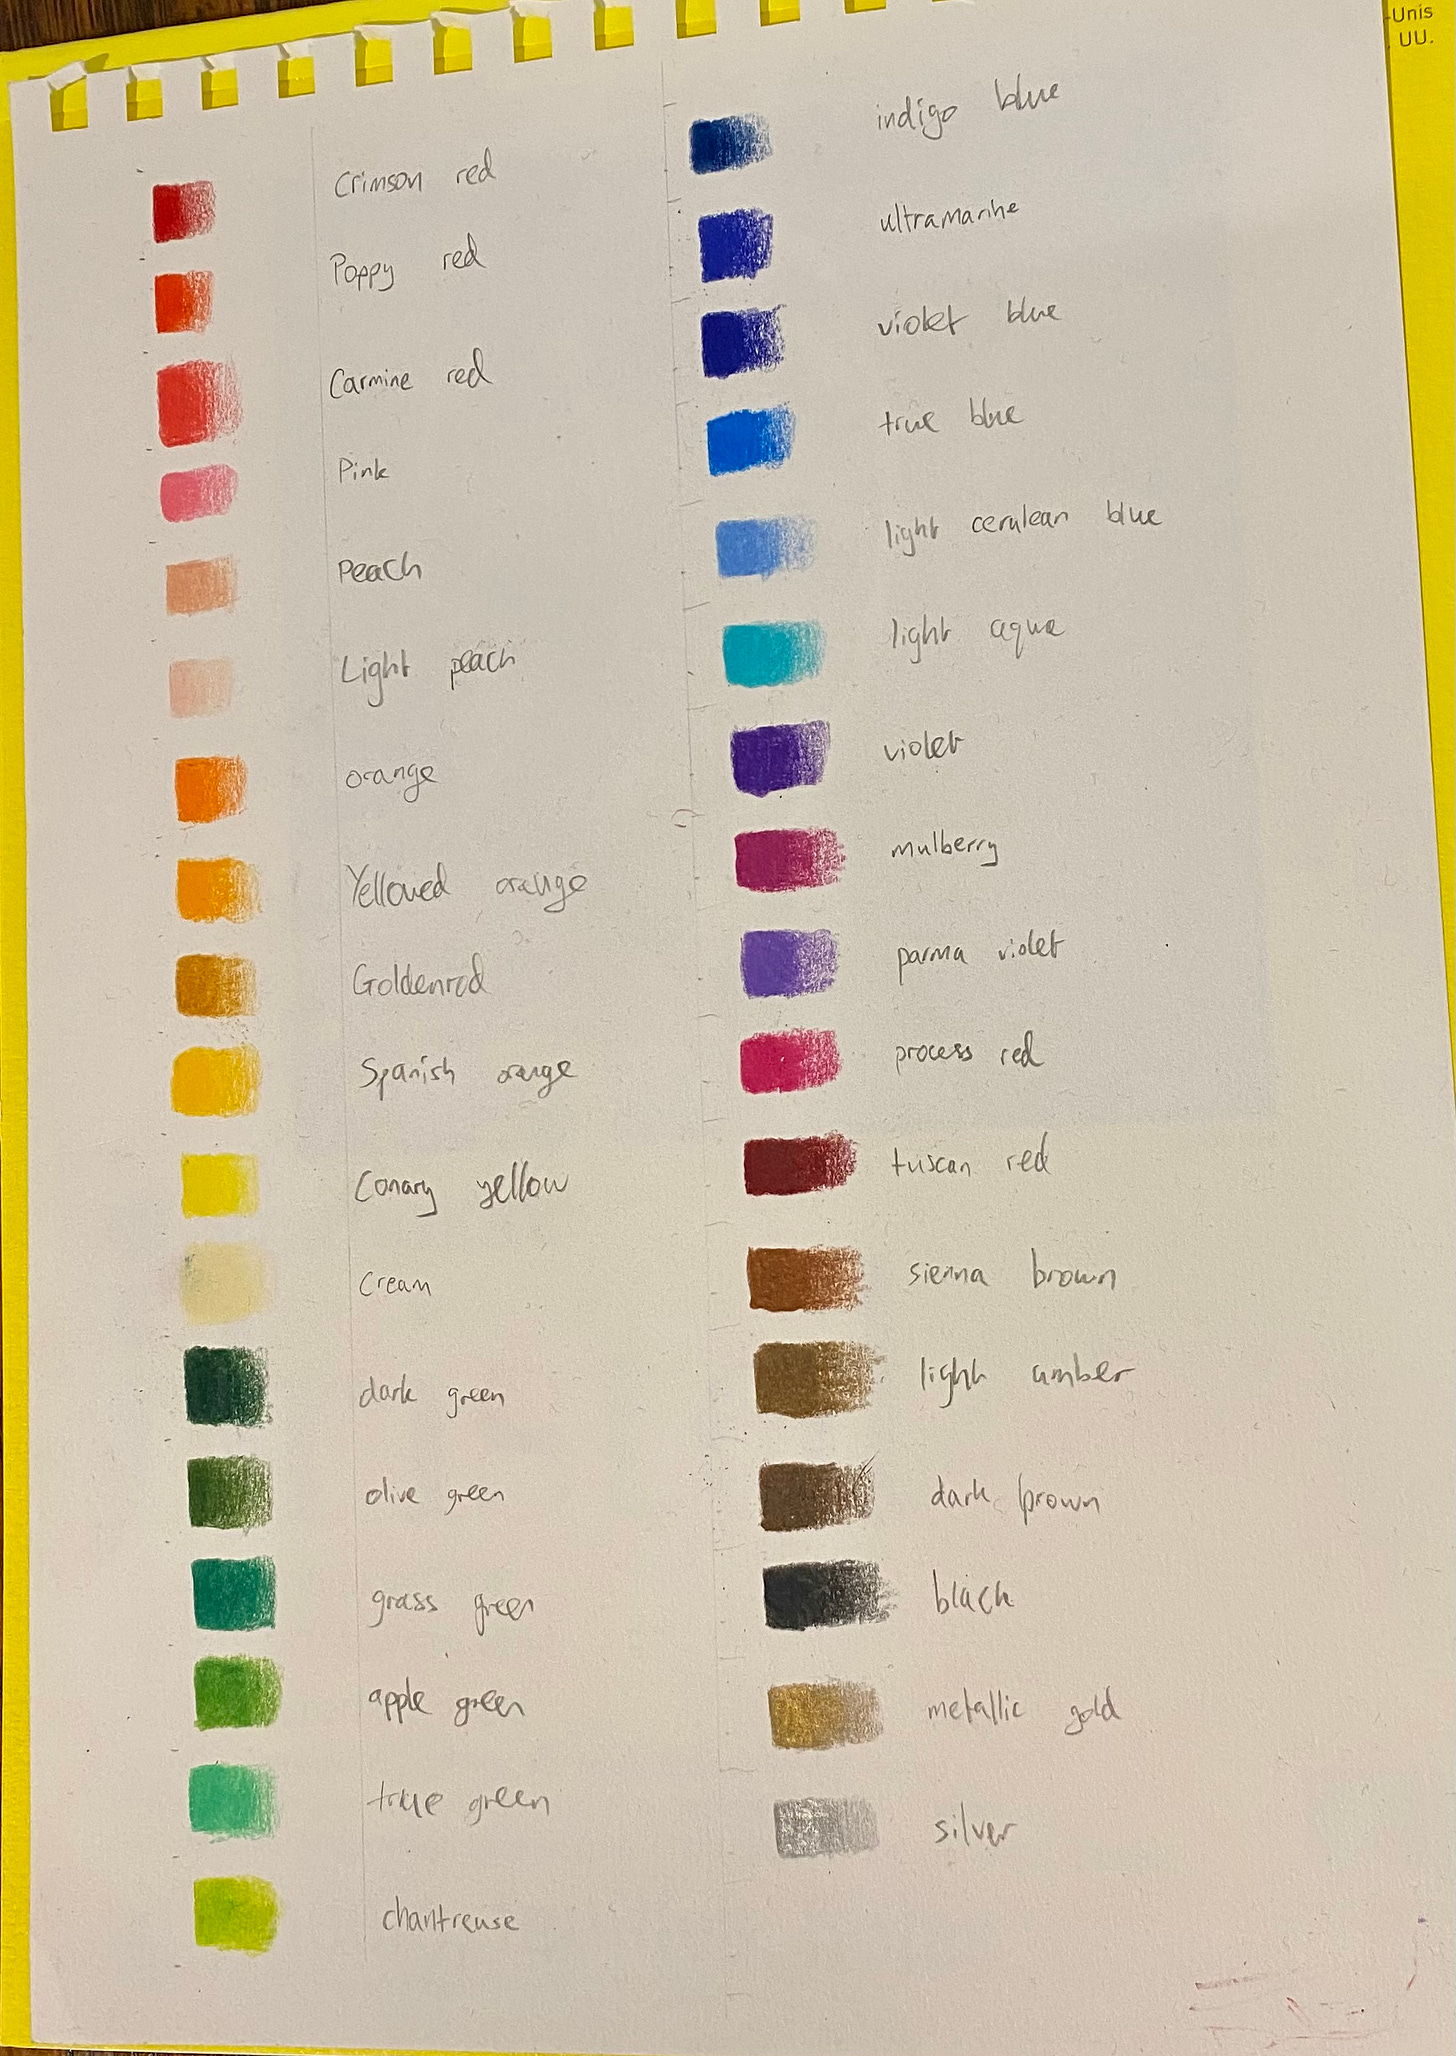 Unis
UU.
Crimson red
Poppy red
Carmine red
Pink
Peach
Light peach
orange
Yellowed orange
Goldenrod
Spanish orange
Conary yellow
Cream
dark green
olive green
grass green
apple green
true green
chantreuse
indigo blue
ultramarine
violet blue
true blue
light cerulean blue
light aqua
violet
mulberry
parma violet
process red
tuscan red
sienna brown
light umber
dark brown
black
metallic gold
silver